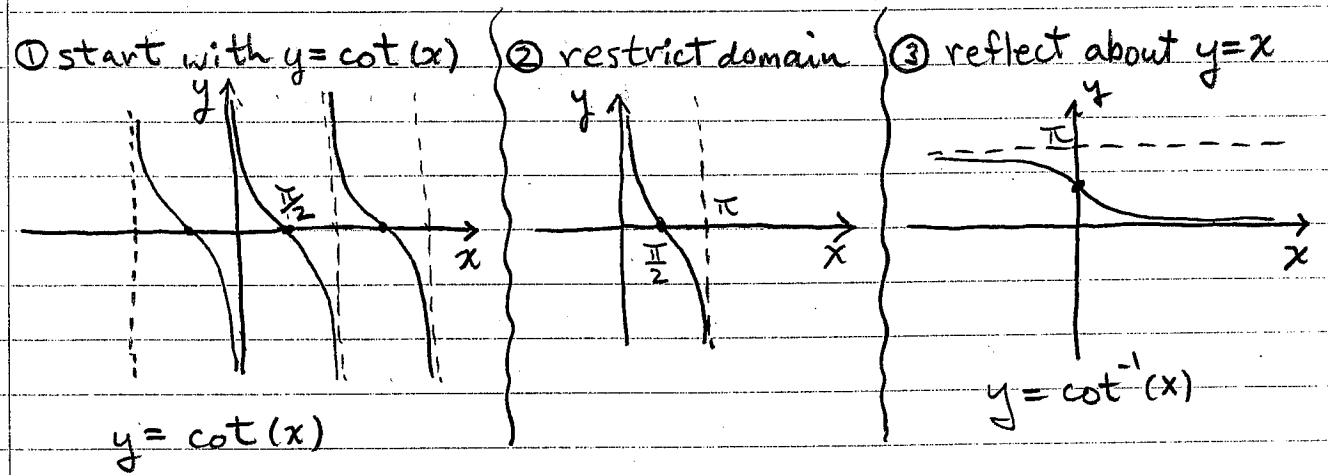 ① start with y = cot(x)
y
π/2
x
y = cot(x)
② restrict domain
y
π
π/2
x
③ reflect about y=x
y
π
x
y = cot⁻¹(x)